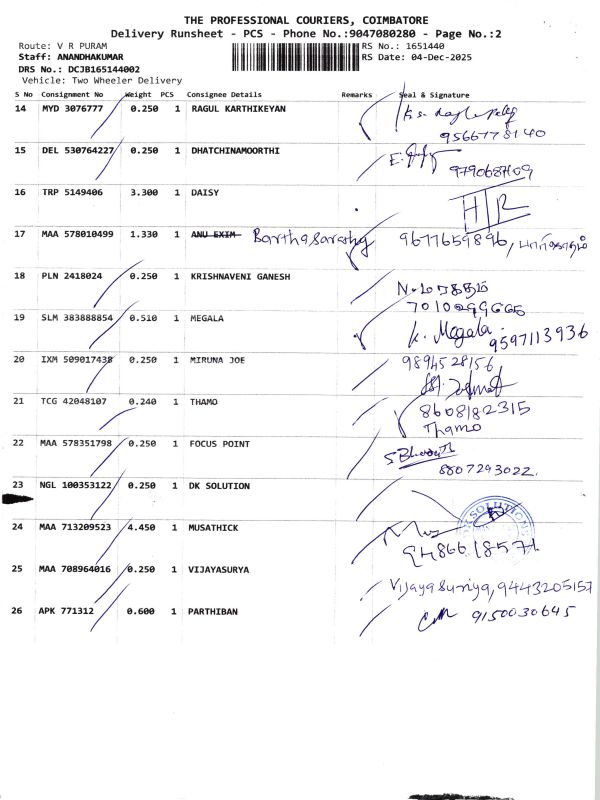 THE PROFESSIONAL COURIERS, COIMBATORE
Delivery Runsheet - PCS - Phone No.:9047080280 - Page No.:2
Route: V R PURAM RS No.: 1651440
Staff: ANANDHAKUMAR RS Date: 04-Dec-2025
DRS No.: DCJB165144002
Vehicle: Two Wheeler Delivery
S No Consignment No Weight PCS Consignee Details Remarks Seal & Signature
14 MYD 3076777 0.250 1 RAGUL KARTHIKEYAN
9566778140
15 DEL 530764227 0.250 1 DHATCHINAMOORTHI
16 TRP 5149406 3.300 1 DAISY
17 MAA 578010499 1.330 1 ANU EXIM Barthasarathy 9677659896,
18 PLN 2418024 0.250 1 KRISHNAVENI GANESH
19 SLM 383888854 0.510 1 MEGALA K. Megala 9597113936
20 IXM 509017438 0.250 1 MIRUNA JOE 9894528156
21 TCG 42048107 0.240 1 THAMO 8608182315
Thamo
22 MAA 578351798 0.250 1 FOCUS POINT
8807293022.
23 NGL 100353122 0.250 1 DK SOLUTION
24 MAA 713209523 4.450 1 MUSATHICK
9486618571
25 MAA 708964016 0.250 1 VIJAYASURYA Vijayasuriya, 9443205157
26 APK 771312 0.600 1 PARTHIBAN 9150030645